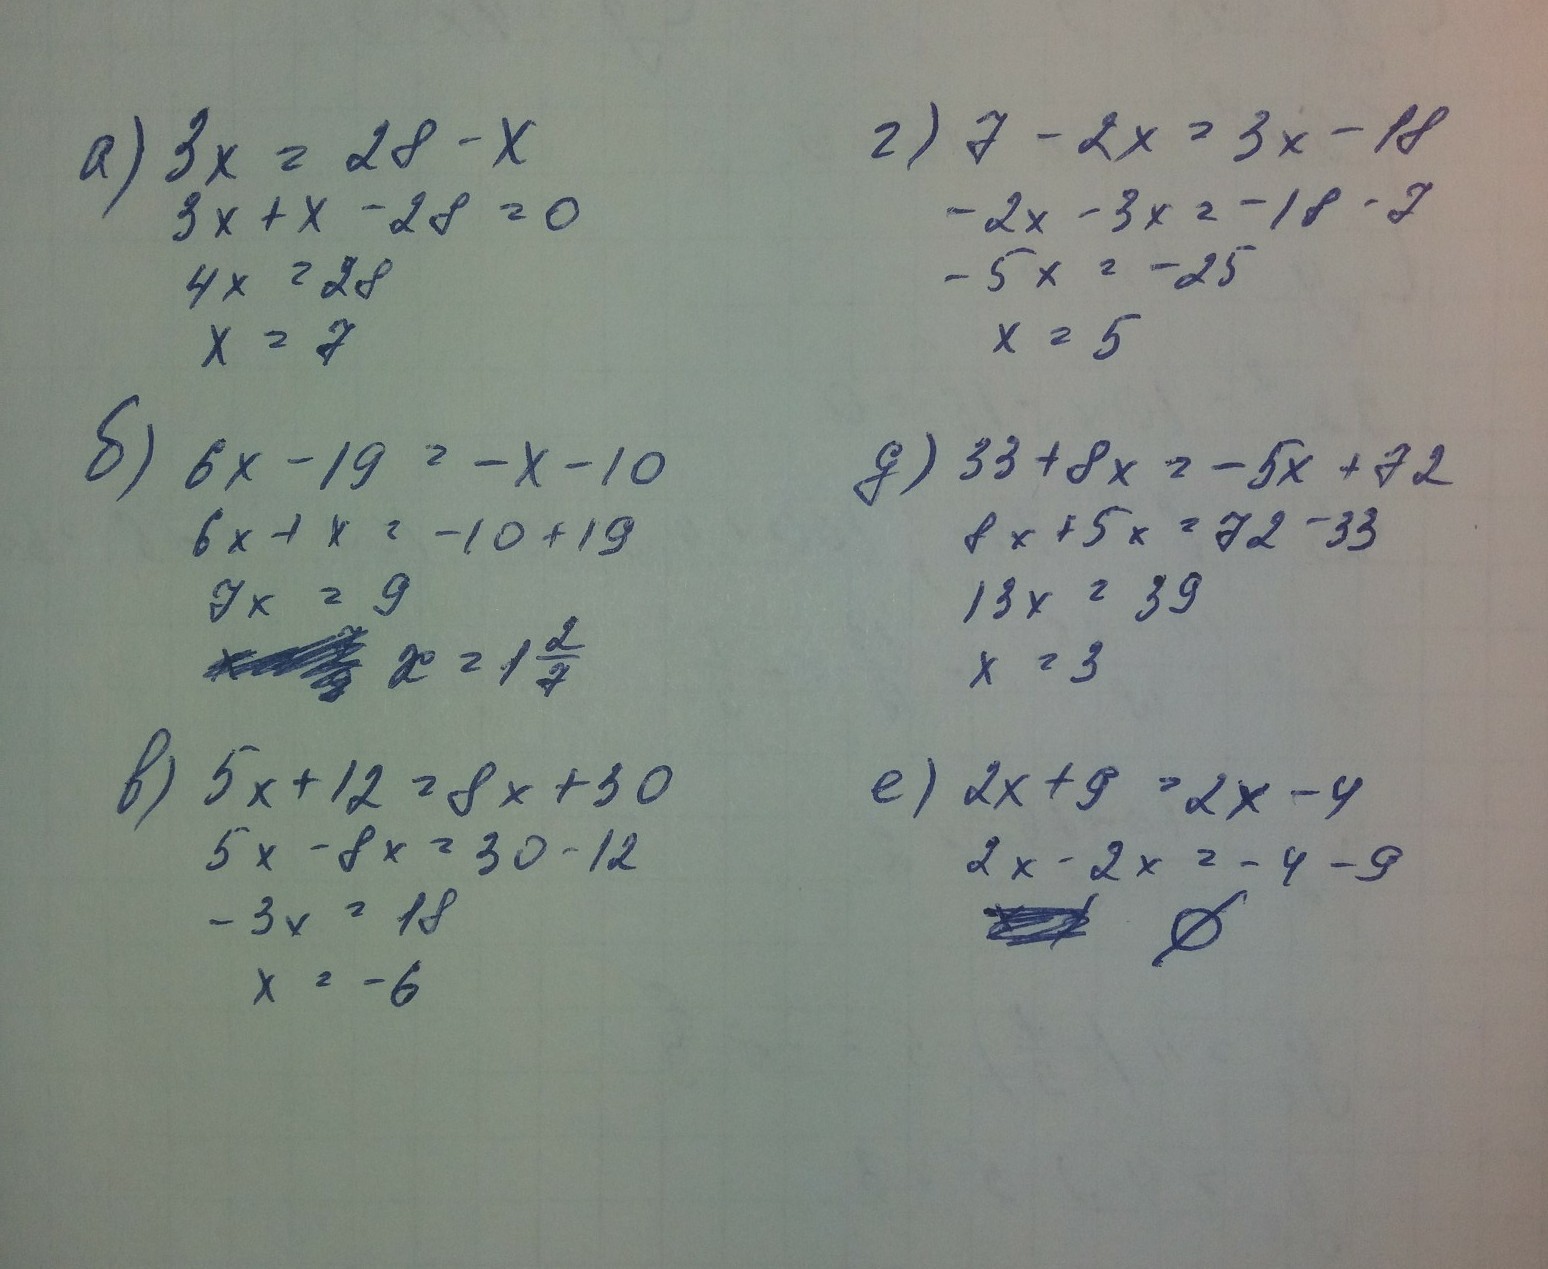 а) 3x = 28 - x
3x + x - 28 = 0
4x = 28
x = 7
б) 6x - 19 = -x - 10
6x + x = -10 + 19
7x = 9
x = 1 2/7
в) 5x + 12 = 8x + 30
5x - 8x = 30 - 12
-3x = 18
x = -6
г) 7 - 2x = 3x - 18
-2x - 3x = -18 - 7
-5x = -25
x = 5
д) 33 + 8x = -5x + 72
8x + 5x = 72 - 33
13x = 39
x = 3
е) 2x + 9 = 2x - 4
2x - 2x = -4 - 9
∅